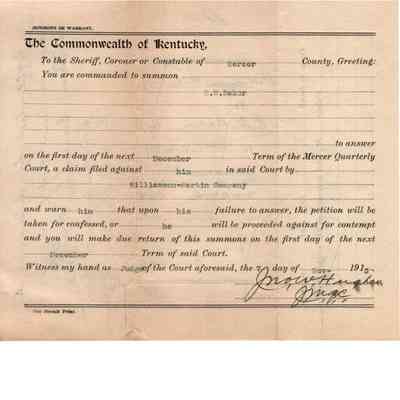 SUMMONS OR WARRANT.
The Commonwealth of Kentucky,
To the Sheriff, Coroner or Constable of Mercer County, Greeting:
You are commanded to summon
to answer
on the first day of the next December Term of the Mercer Quarterly
Court, a claim filed against him in said Court by
Williamson-Martin Company
and warn him that upon his failure to answer, the petition will be
taken for confessed, or he will be proceeded against for contempt
and you will make due return of this summons on the first day of the next
December Term of said Court.
Witness my hand as Judge of the Court aforesaid, the 7 day of Nov. 191